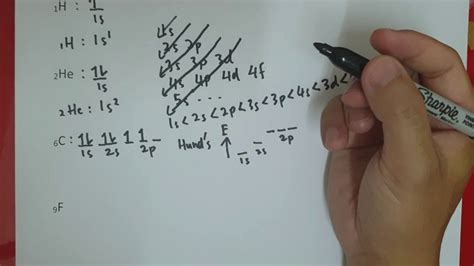 ₁H : 1
1s
₁H : 1s¹
₂He : 1⇂
1s
₂He : 1s²
₆C : 1⇂ 1⇂ 1 1 _
1s 2s 2p
₉F
1s
2s 2p
3s 3p 3d
4s 4p 4d 4f
5 . . .
1s < 2s < 2p < 3s < 3p < 4s < 3d <
Hund's E ↑
1s 2s 2p
Sharpie